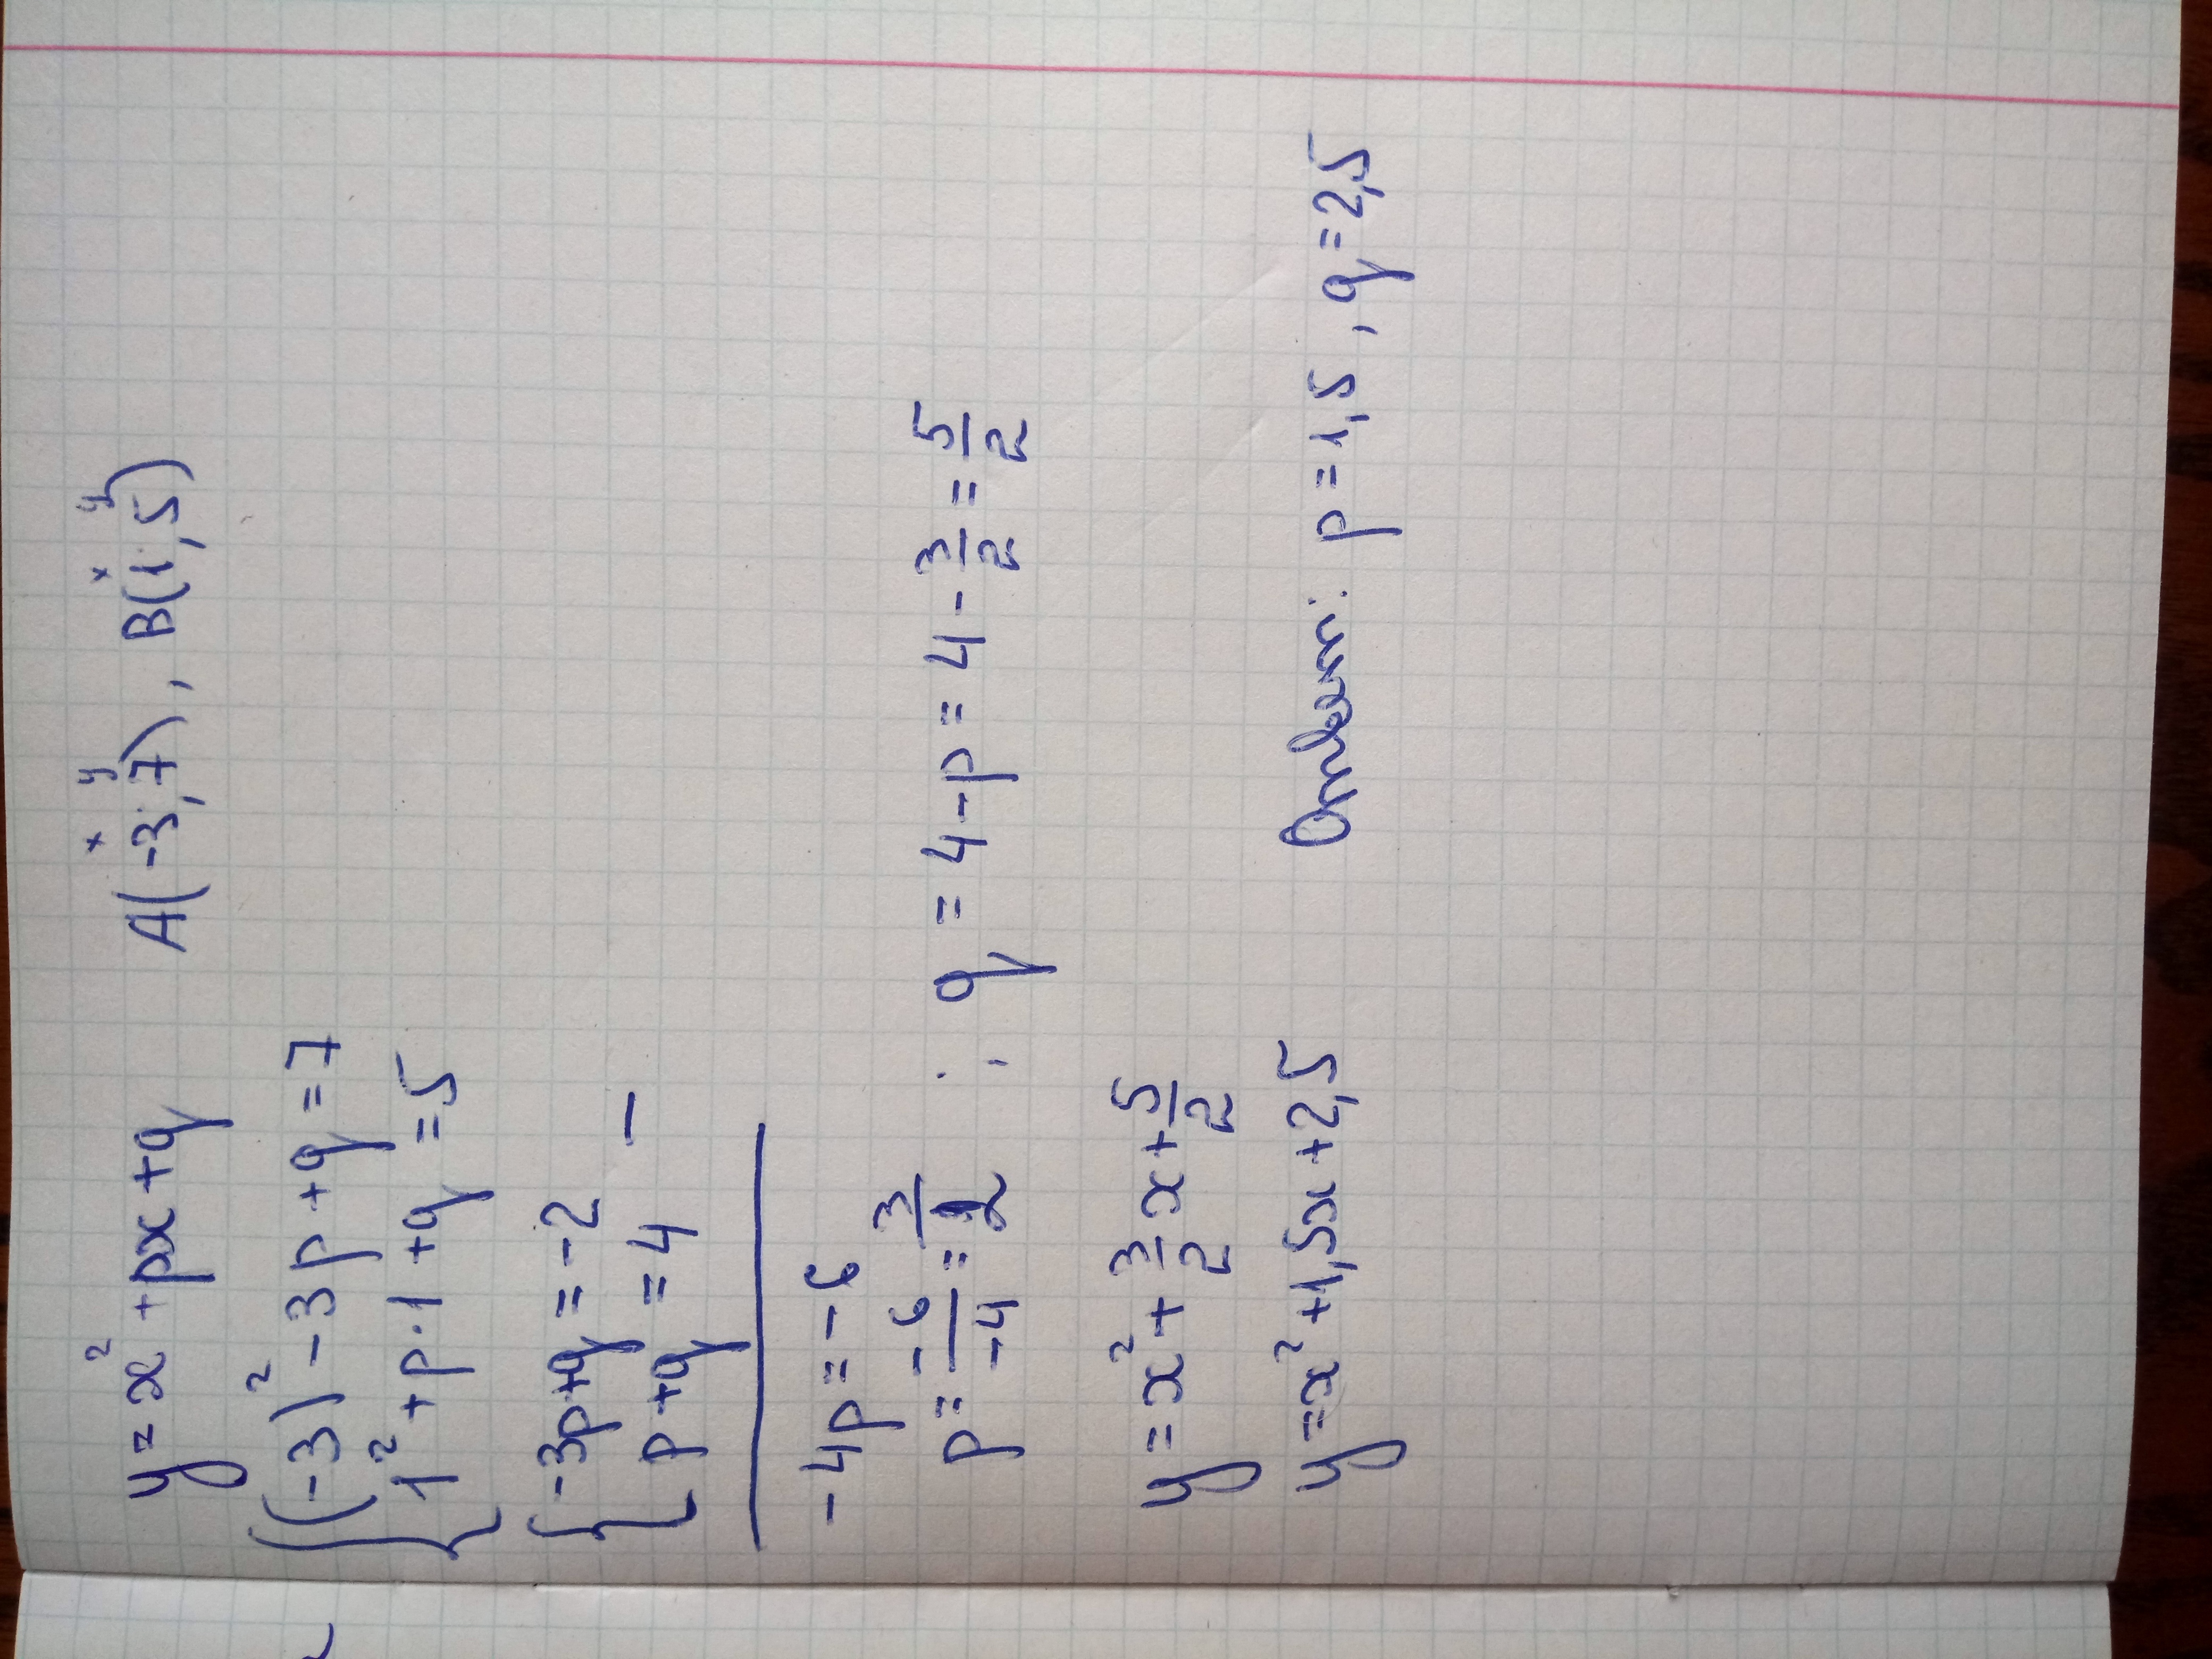 y = x² + px + q A(-3; 7), B(1; 5)
x y x y
{(-3)² - 3p + q = 7
1² + p · 1 + q = 5
{-3p + q = -2
p + q = 4 -
-4p = -6
p = -6/-4 = 3/2 ; q = 4 - p = 4 - 3/2 = 5/2
y = x² + 3/2 x + 5/2
y = x² + 1,5x + 2,5 Ответ: p = 1,5 , q = 2,5